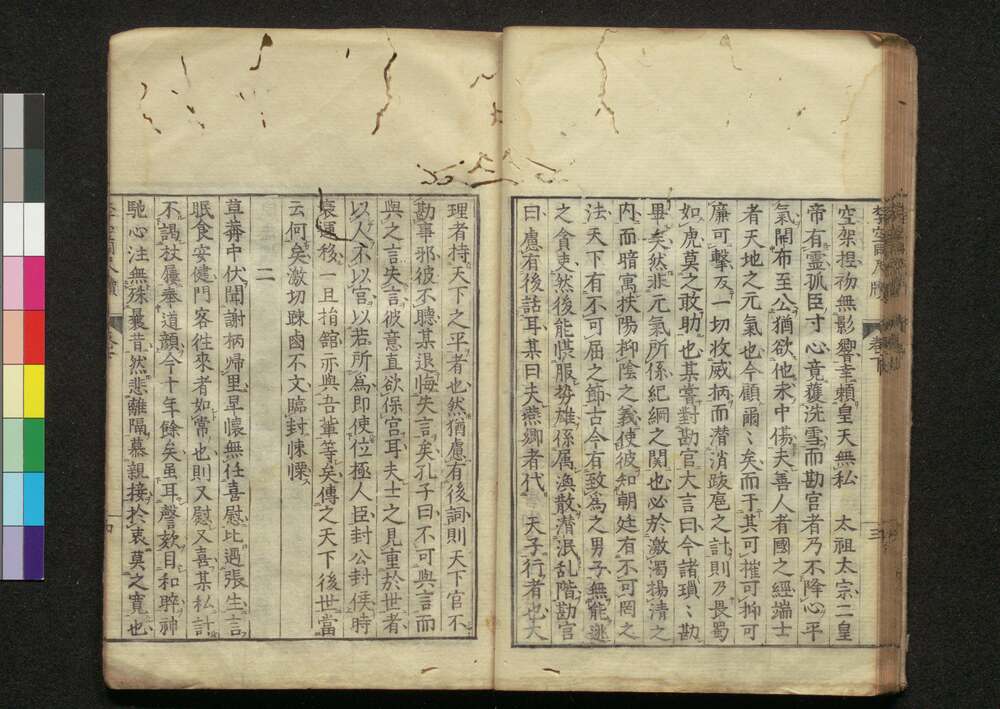 空架捏㐫無影響幸賴皇天無私　太祖太宗二皇
帝有靈孤臣寸心竟獲洗雪而勘官者乃不降心平
氣開布至公猶欲他求中傷夫善人者國之經端士
者天地之元氣也今顧爾〻矣而于其可摧可抑可
廉可擊反一切收威柄而潛消跋扈之計則乃長蜀
如虎莫之敢助也某嘗對勘官大言曰今諸瑣〻勘
畢矣然非元氣所係紀綱之関也必於激濁揚清之
内而暗寓扶陽抑陰之義使彼知朝廷有不可罔之
法天下有不可屈之節古今有致爲之男子無能逃
之貪吏然後能愜服勢雄係属渙散潛泯乱階勘官
曰慮有後話耳某曰夫燕卿者代　天子行者也大
理者持天下之平者也然猶慮有後詞則天下官不
勘事邪彼不聽某退悔失言矣孔子曰不可與言而
與之言失言彼意直欲保官耳夫士之見重於世者
以人不以官以若所為即使位極人臣封公封侯時
衰運移一旦捐館亦與吾輩等矣傳之天下後世當
云何矣激切踈鹵不文臨封悚慄
二
草莽中伏聞謝柄帰里早懐無任喜慰比遇張生言
眠食安健門客徃來者如常也則又慰又喜某私計
不謁杖屨奉道顏今十年餘矣虽耳謦欬目和睟神
馳心注無殊曩昔然悲離隔慕親接扵衷莫之寛也